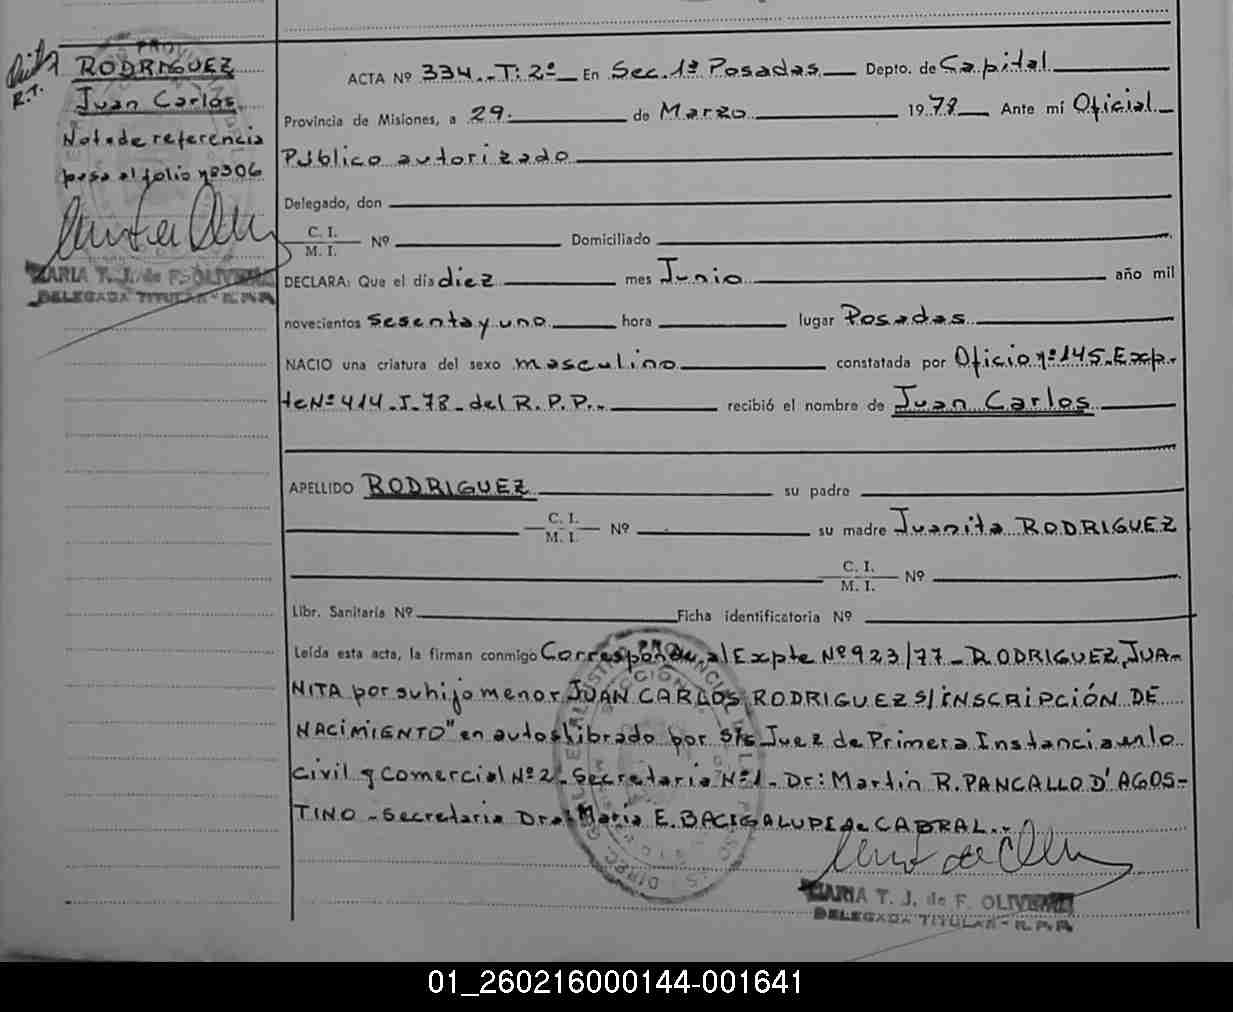 RODRIGUEZ
Juan Carlos
Nota de referencia
pasa al folio nº 306
MARIA T. J. de F. OLIVEIRA
DELEGADA TITULAR - R. P. P.
ACTA Nº 334. - T: 2º En Sec. 1ª Posadas Depto. de Capital
Provincia de Misiones, a 29. de Marzo 1978 Ante mí Oficial
Público autorizado
Delegado, don
C. I.
M. I. Nº Domiciliado
DECLARA: Que el día diez mes Junio año mil
novecientos sesenta y uno hora lugar Posadas
NACIO una criatura del sexo masculino constatada por Oficio nº 145. Exp.
te Nº 414 - I - 78 - del R. P. P. - recibió el nombre de Juan Carlos
APELLIDO RODRIGUEZ su padre
C. I.
M. I. Nº su madre Juanita RODRIGUEZ
C. I.
M. I. Nº
Libr. Sanitaria Nº Ficha identificatoria Nº
Leída esta acta, la firman conmigo Corresponde al Expte Nº 923/77 - RODRIGUEZ, JUA-
NITA por su hijo menor JUAN CARLOS RODRIGUEZ S/INSCRIPCIÓN DE
NACIMIENTO" en autos librado por S/S Juez de Primera Instancia en lo
civil y Comercial Nº 2 - Secretaria Nº 1 - Dr: Martin R. PANCALLO D'AGOS-
TINO - Secretaria Dra: Maria E. BACIGALUPI de CABRAL. -
MARIA T. J. de F. OLIVEIRA
DELEGADA TITULAR - R. P. P.
01_260216000144-001641